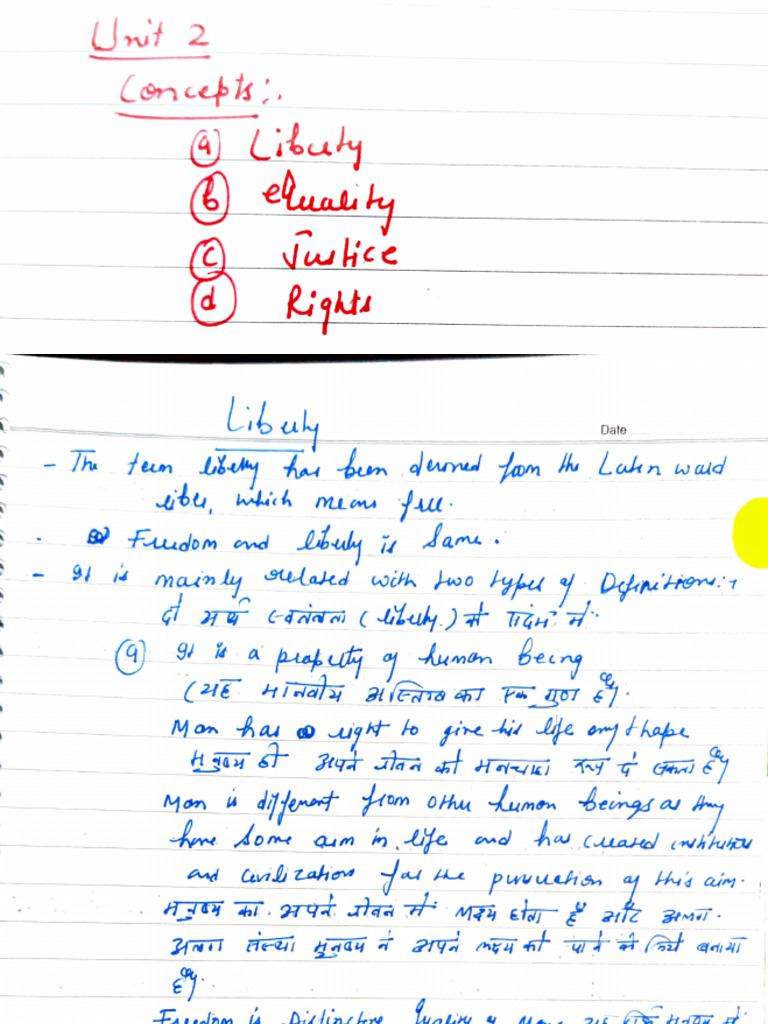 Unit 2
Concepts:.
(a) Liberty
(b) equality
(c) Justice
(d) Rights
Liberty
Date
- The term liberty has been derived from the Latin word
liber, which means free.
. Freedom and liberty is same.
- It is mainly related with two types of Definitions:-
दो अर्थ स्वतंत्रता (liberty) के संदर्भ में.
(a) It is a property of human being
(यह मानवीय अस्तित्व का एक गुण है).
Man has right to give his life any shape
मनुष्य ही अपने जीवन को मनचाहा रूप दे सकता है
Man is different from other human beings as they
have some aim in life and has created institutions
and civilization for the of this aim.
मनुष्य का अपने जीवन में लक्ष्य होता है और अलग-
अलग संस्था मनुष्य ने अपने लक्ष्य को पाने के लिये बनाया
है.
Freedom is Distinctive Quality of Man यह सिर्फ मनुष्य में